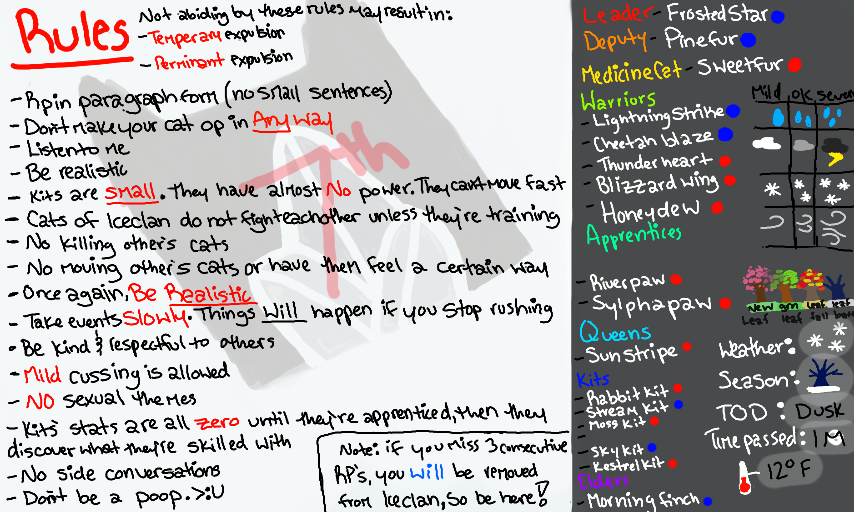 Rules
Not abiding by these rules may result in:
-Temperary expulsion
-Perminant expulsion
-Rp in paragraph form (no small sentences)
-Don't make your cat op in Any way
-Listen to me
-Be realistic
-Kits are small. They have almost No power. They cant move fast
-Cats of Iceclan do not fight eachother unless they're training
-No killing other's cats
-No moving other's cats or have them feel a certain way
-Once again, Be Realistic
-Take events Slowly. Things Will happen if you stop rushing
-Be kind & respectful to others
-Mild cussing is allowed
-NO sexual themes
-Kits' stats are all zero until they're apprenticed, then they
discover what they're skilled with
-No side conversations
-Don't be a poop. >:U
Note: if you miss 3 consecutive
RP's, you will be removed
from Iceclan, so be here!
7th
Leader - FrostedStar
Deputy - Pinefur
Medicine Cat - Sweetfur
Warriors
-Lightning Strike
-Cheetah blaze
-Thunder heart
-Blizzard wing
-Honeydew
Apprentices
-Riverpaw
-Sylphapaw
Queens
-Sunstripe
Kits
-Rabbit kit
-Stream kit
-Moss kit
-
-Sky kit
-Kestrel kit
Elders
-Morning finch
Mild, OK, severe
New grn leaf leaf
Leaf leaf fall bare
Weather:
Season:
TOD: Dusk
Time passed: 1M
12°F